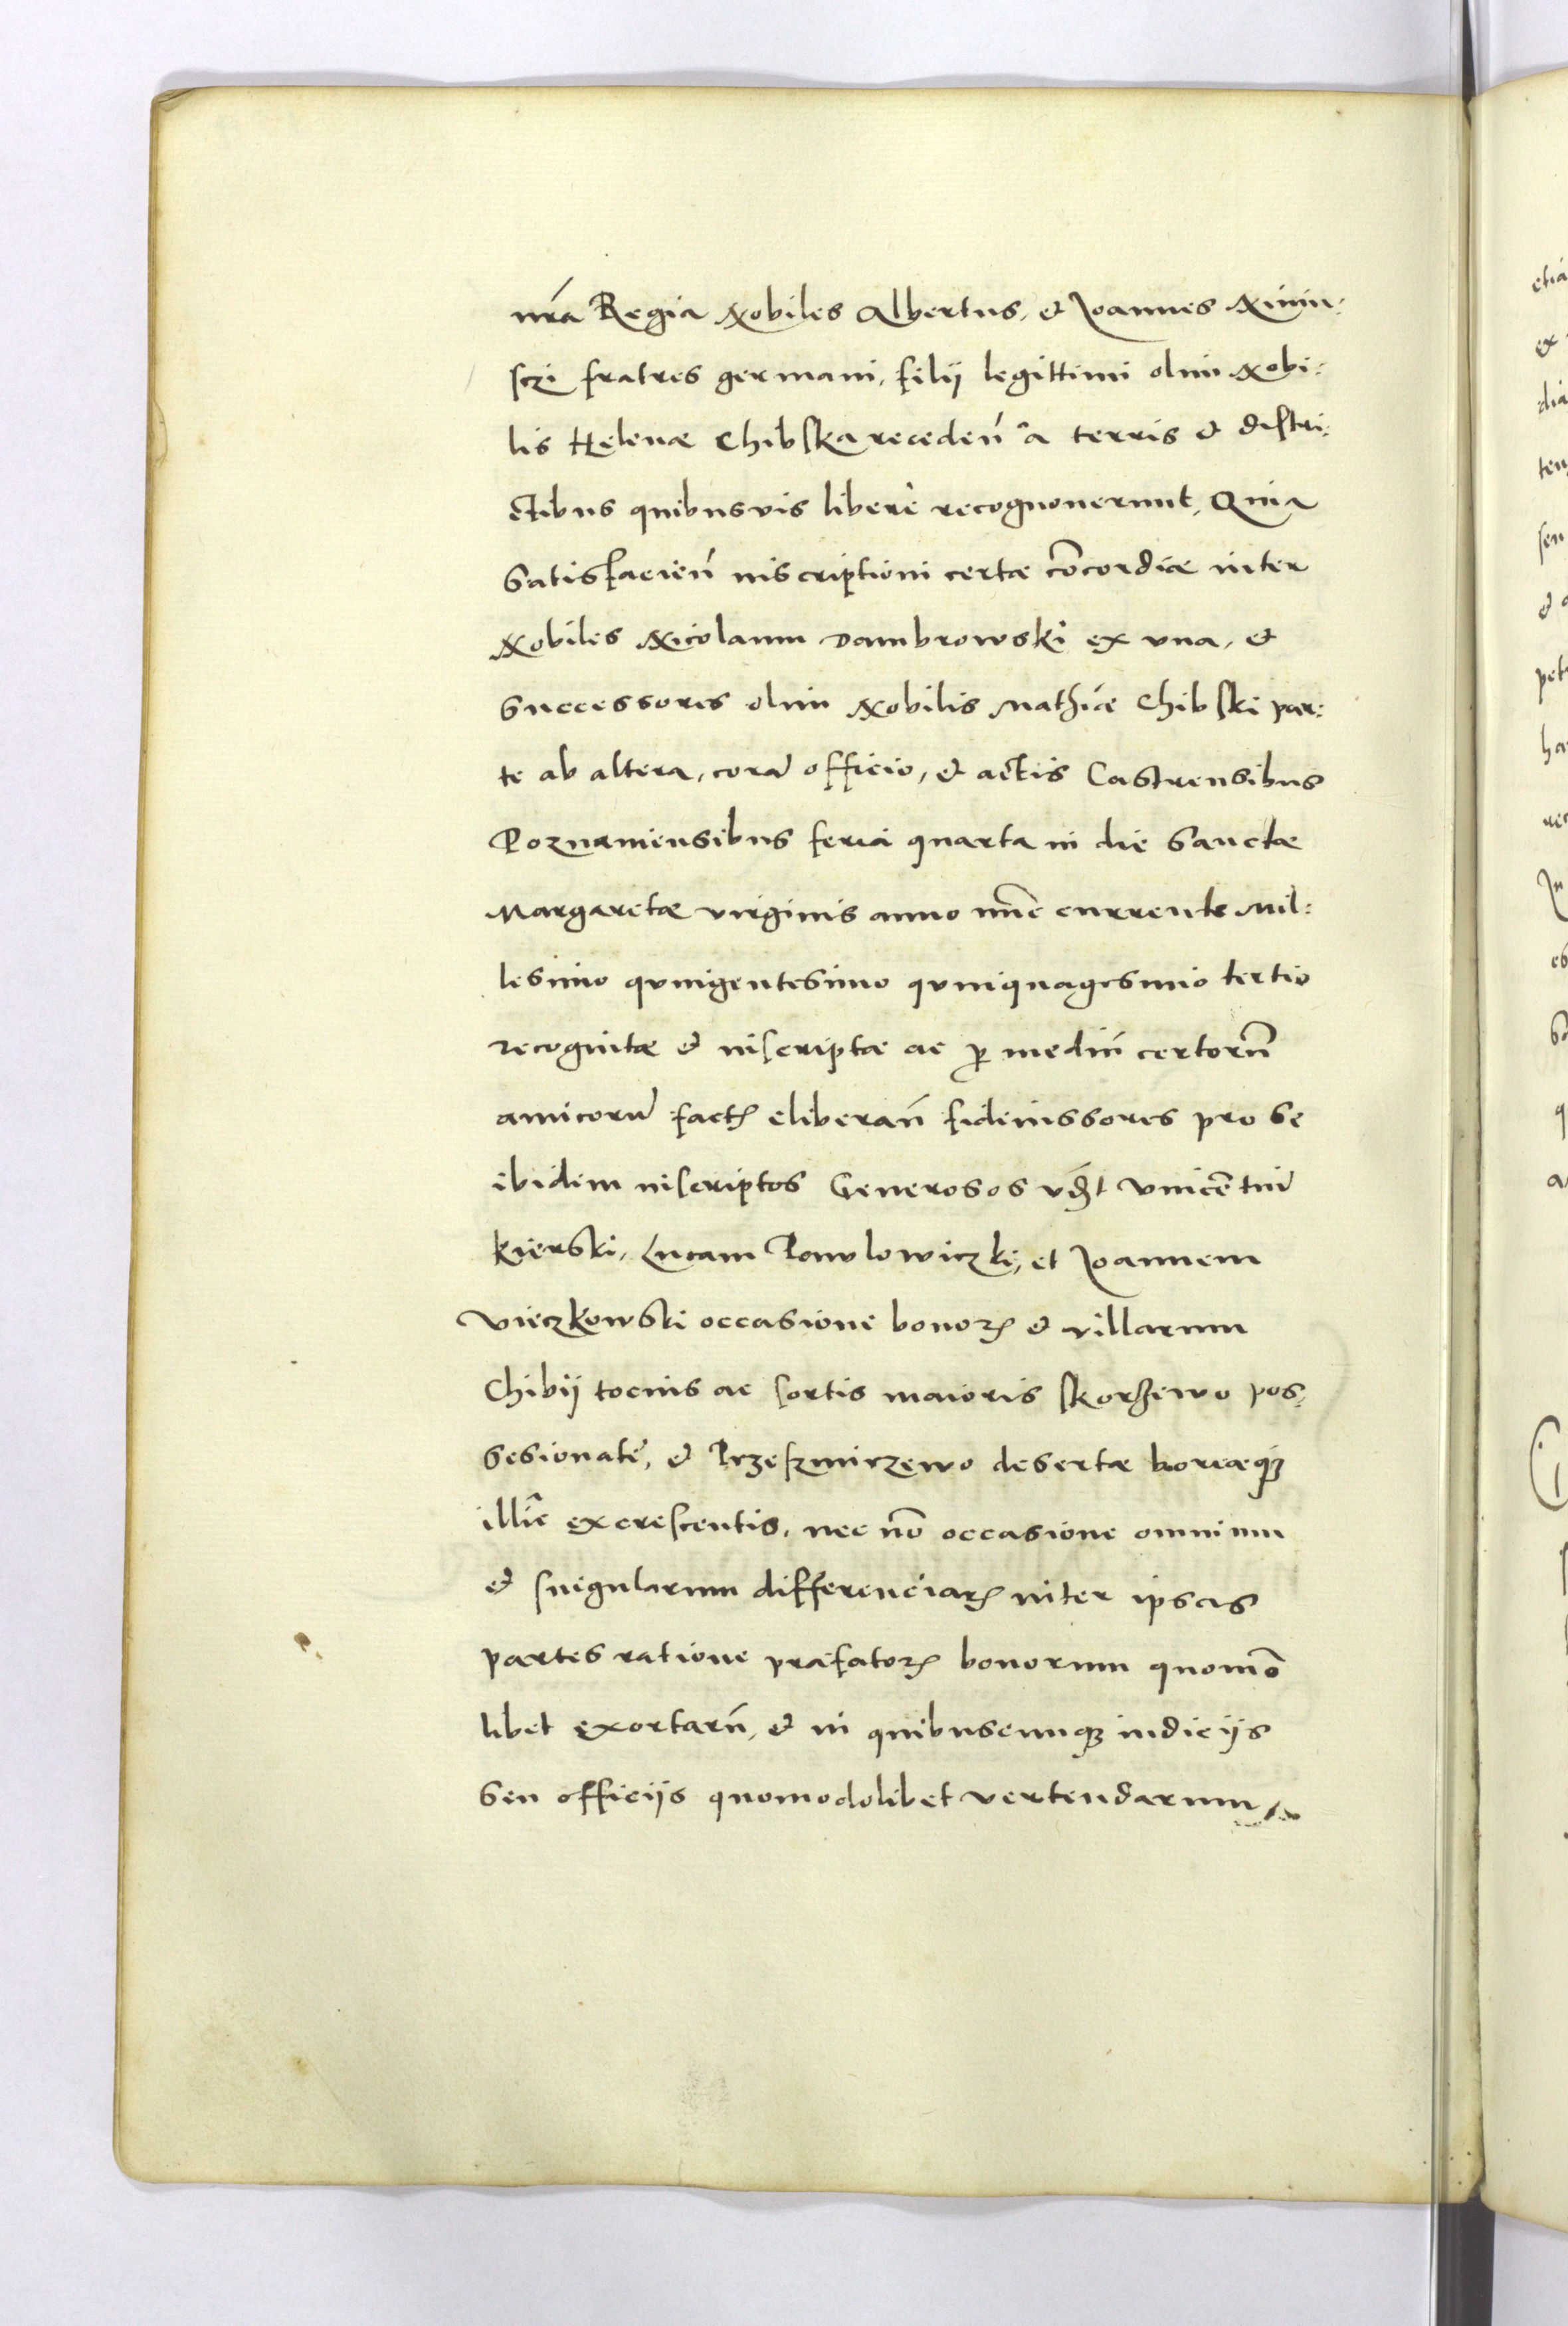 nr̃a Regia Nobiles Albertus, et Joannes Niniń-
sczi fratres germani, filij legittimi olim Nobi:
lis Helenæ Chibska receden̄ à terris et distri:
ctibus quibusvis liberè recognouerunt, Quia
Satisfacien̄ inscriptioni certæ cōcordiæ inter
Nobiles Nicolaum Dambrowski ex vna, et
Successores olim Nobilis Mathiæ Chibski par:
te ab altera, corā officio, et actis Castrensibus
Poznaniensibus feria quarta in die Sanctæ
Margaretæ virginis anno nūc currente Mil:
lesimo quingentesimo quinquagesimo tertio
recognitæ et inscriptæ ac p mediū certorū
amicorū factꝶ eliberan̄ fideiussores pro se
ibidem inscriptos Generosos vdꝫt Vincētiū
Kierski, Lucam Pawlowiczki, et Joannem
Vieczkowski occasione bonoꝶ et villarum
Chibij tocius ac sortis maioris Skorzewo pos:
sesionatē, et Przezmirzewo desertæ boræqꝫ
illīc excrescentis, nec nō occasione omnium
et singularum differenciaꝶ inter ipsas
partes ratione præfatoꝶ bonorum quomō
libet exortarū, et in quibuscunqꝫ iudicijs
Seu officijs quomodolibet vertendarum